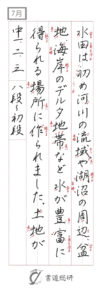 7月
水田は初め河川の流域や湖沼の周辺、盆
地海岸のデルタ地帯など水が豊富に
得られる場所に作られました。土地が
中一・二・三 八段〜初段
書道総研